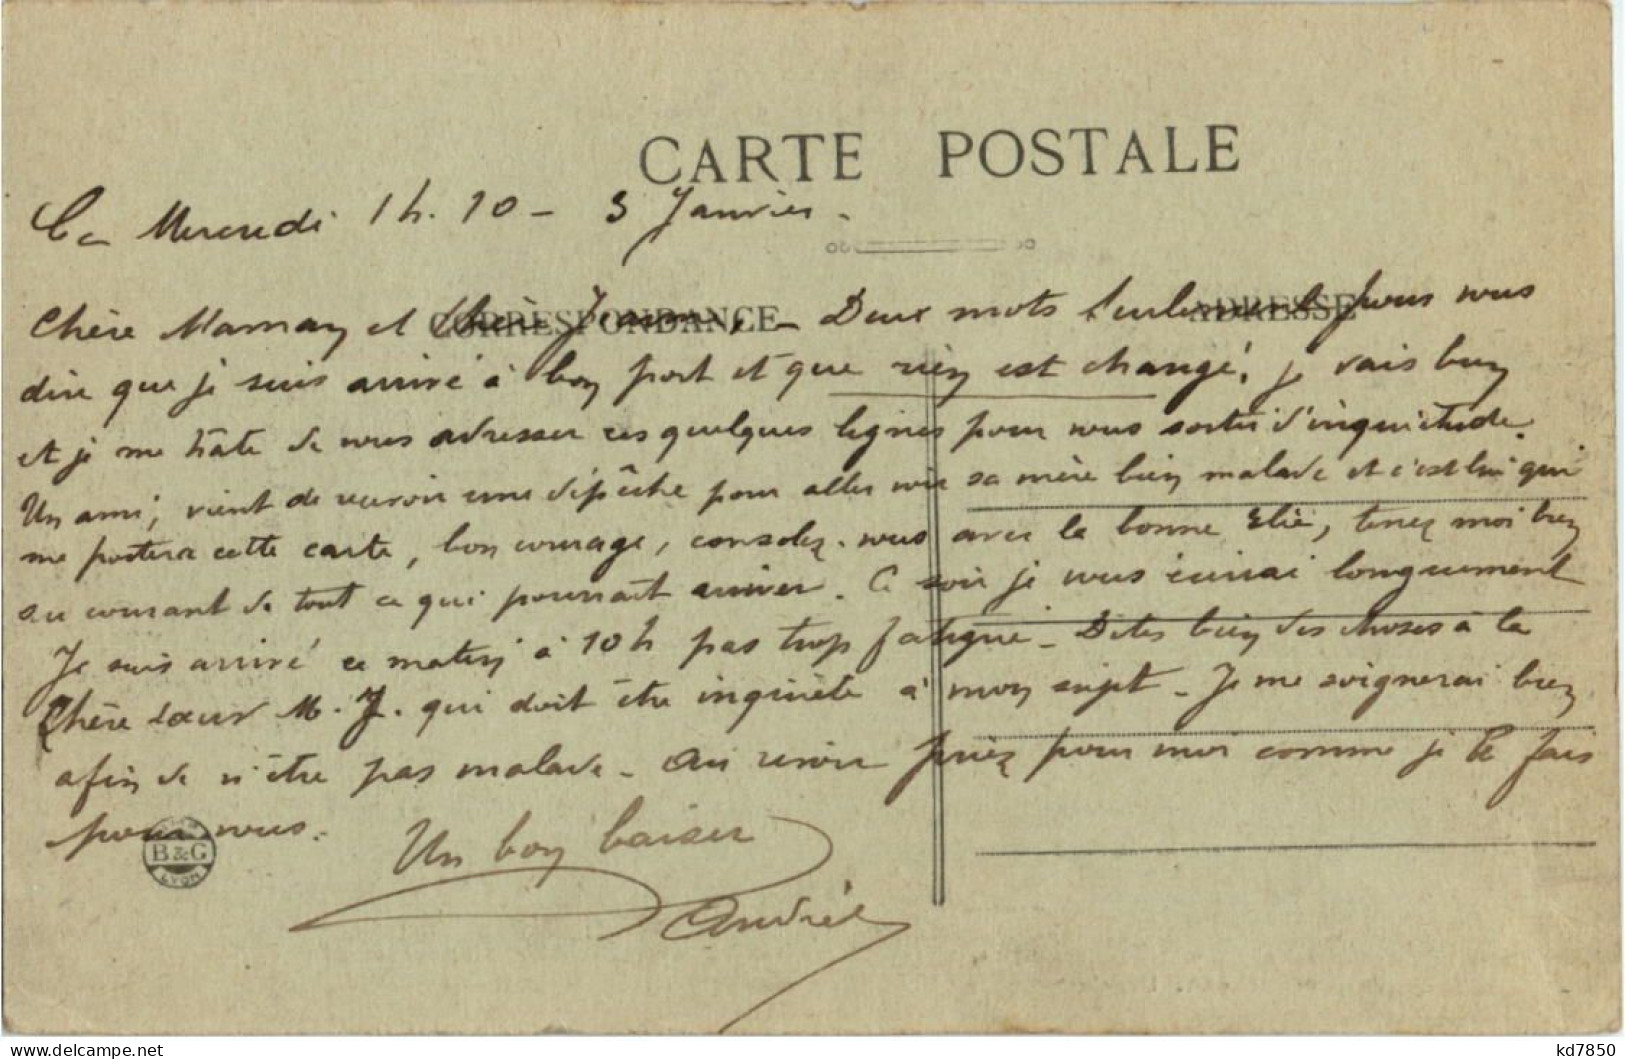 CARTE POSTALE
Ce Mercredi 1h.10 - 3 Janvier.
CORRESPONDANCE
ADRESSE
Chère Maman et chère - Deux mots seulement pour vous
dire que je suis arrivé à bon port et que rien est changé, je vais bien
et je me hâte de vous adresser ces quelques lignes pour vous sortir d'inquiétude.
Un ami, vient de recevoir une dépêche pour aller voir sa mère bien malade et c'est lui qui
me postera cette carte, bon courage, consolez-vous avec la bonne Elie, tenez moi bien
au courant de tout ce qui pourrait arriver. Ce soir je vous écrirai longuement
Je suis arrivé ce matin à 10h pas trop fatigué - Dites bien des choses à la
Chère sœur M. J. qui doit être inquiète à mon sujet - Je me soignerai bien
afin de n'être pas malade - Au revoir priez pour moi comme je le fais
pour vous.
B&G
LYON
Un bon baiser
André
kd7850